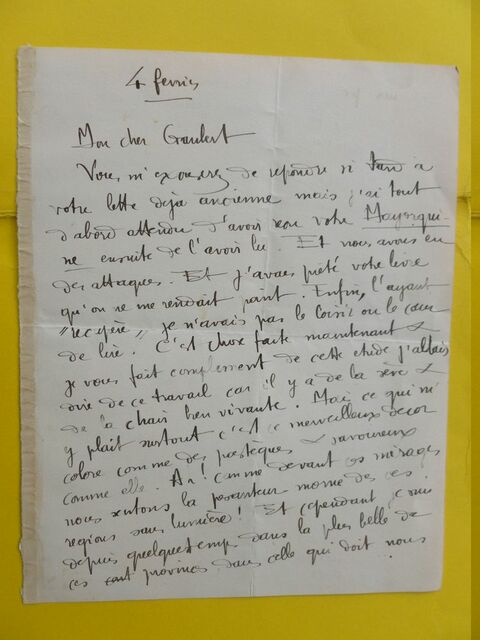 4 fevrier
Mon cher Graulert
Vous m'excuserez de repondre si tard à
votre lettre dejà ancienne mais j'ai tout
d'abord attendu d'avoir reçu votre Mayorqui-
ne ensuite de l'avoir lu. Et nous avons eu
des attaques. Et j'avais prêté votre livre
qu'on ne me rendait point. Enfin, l'ayant
"recupéré" je n'avais pas le loisir ou le cœur
de lire. C'est chose faite maintenant &
je vous fait compliment de cette etude j'allais
dire de ce travail car il y a de la sève &
de la chair bien vivante. Mais ce qui m'
y plait surtout c'est ce merveilleux decor
coloré comme des pastèques & savoureux
comme elle. Ah! comme devant ces mirages
nous sentons la pesanteur morne de ces
regions sans lumière! Et cependant je suis
depuis quelque temps dans la plus belle de
ces provinces dans celle qui doit nous